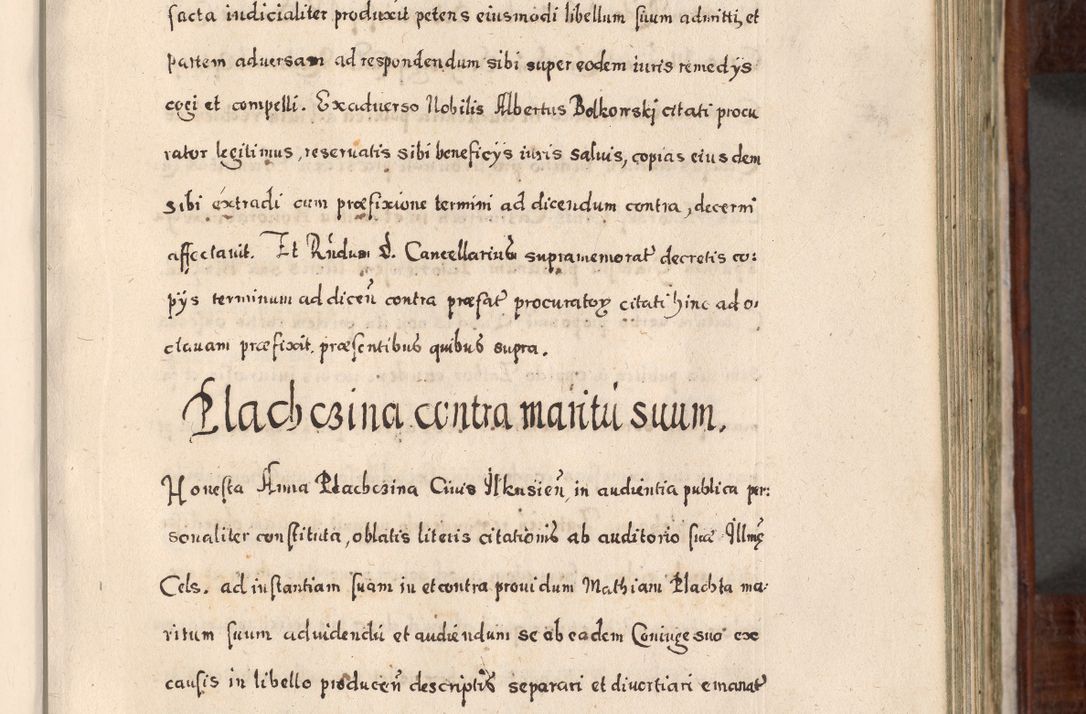 facta iudicialiter produxit petens eiusmodi libellum suum admitti, et
partem adversam ad respondendum sibi super eodem iuris remedys
cogi et compelli. Exaduerso Nobilis Albertus Bolkowskj citati procu
rator legitimus, reseruatis sibi beneficys iuris saluis, copias eiusdem
sibi extradi cum præfixione termini ad dicendum contra, decerni
affectauit. Et Rndum d. Cancellarius supramemorat decretis co:
pys terminum ad dicen contra præfat procurator citati hinc ad o:
ctauam præfixit. præsentibus quibus supra.
Plachczina contra maritū suum.
Honesta Anna Plachczina Ciuis Ilkusien, in audientia publica per:
sonaliter constituta, oblatis literis citationis ab auditorio suæ Illmę
Cels. ad instantiam suam in et contra prouidum Mathiam Plachta ma:
ritum suum ad videndū et audiendum se ab eadem Coniuge suo ex
causis in libello producen descriptis separari et diuortiari emanat